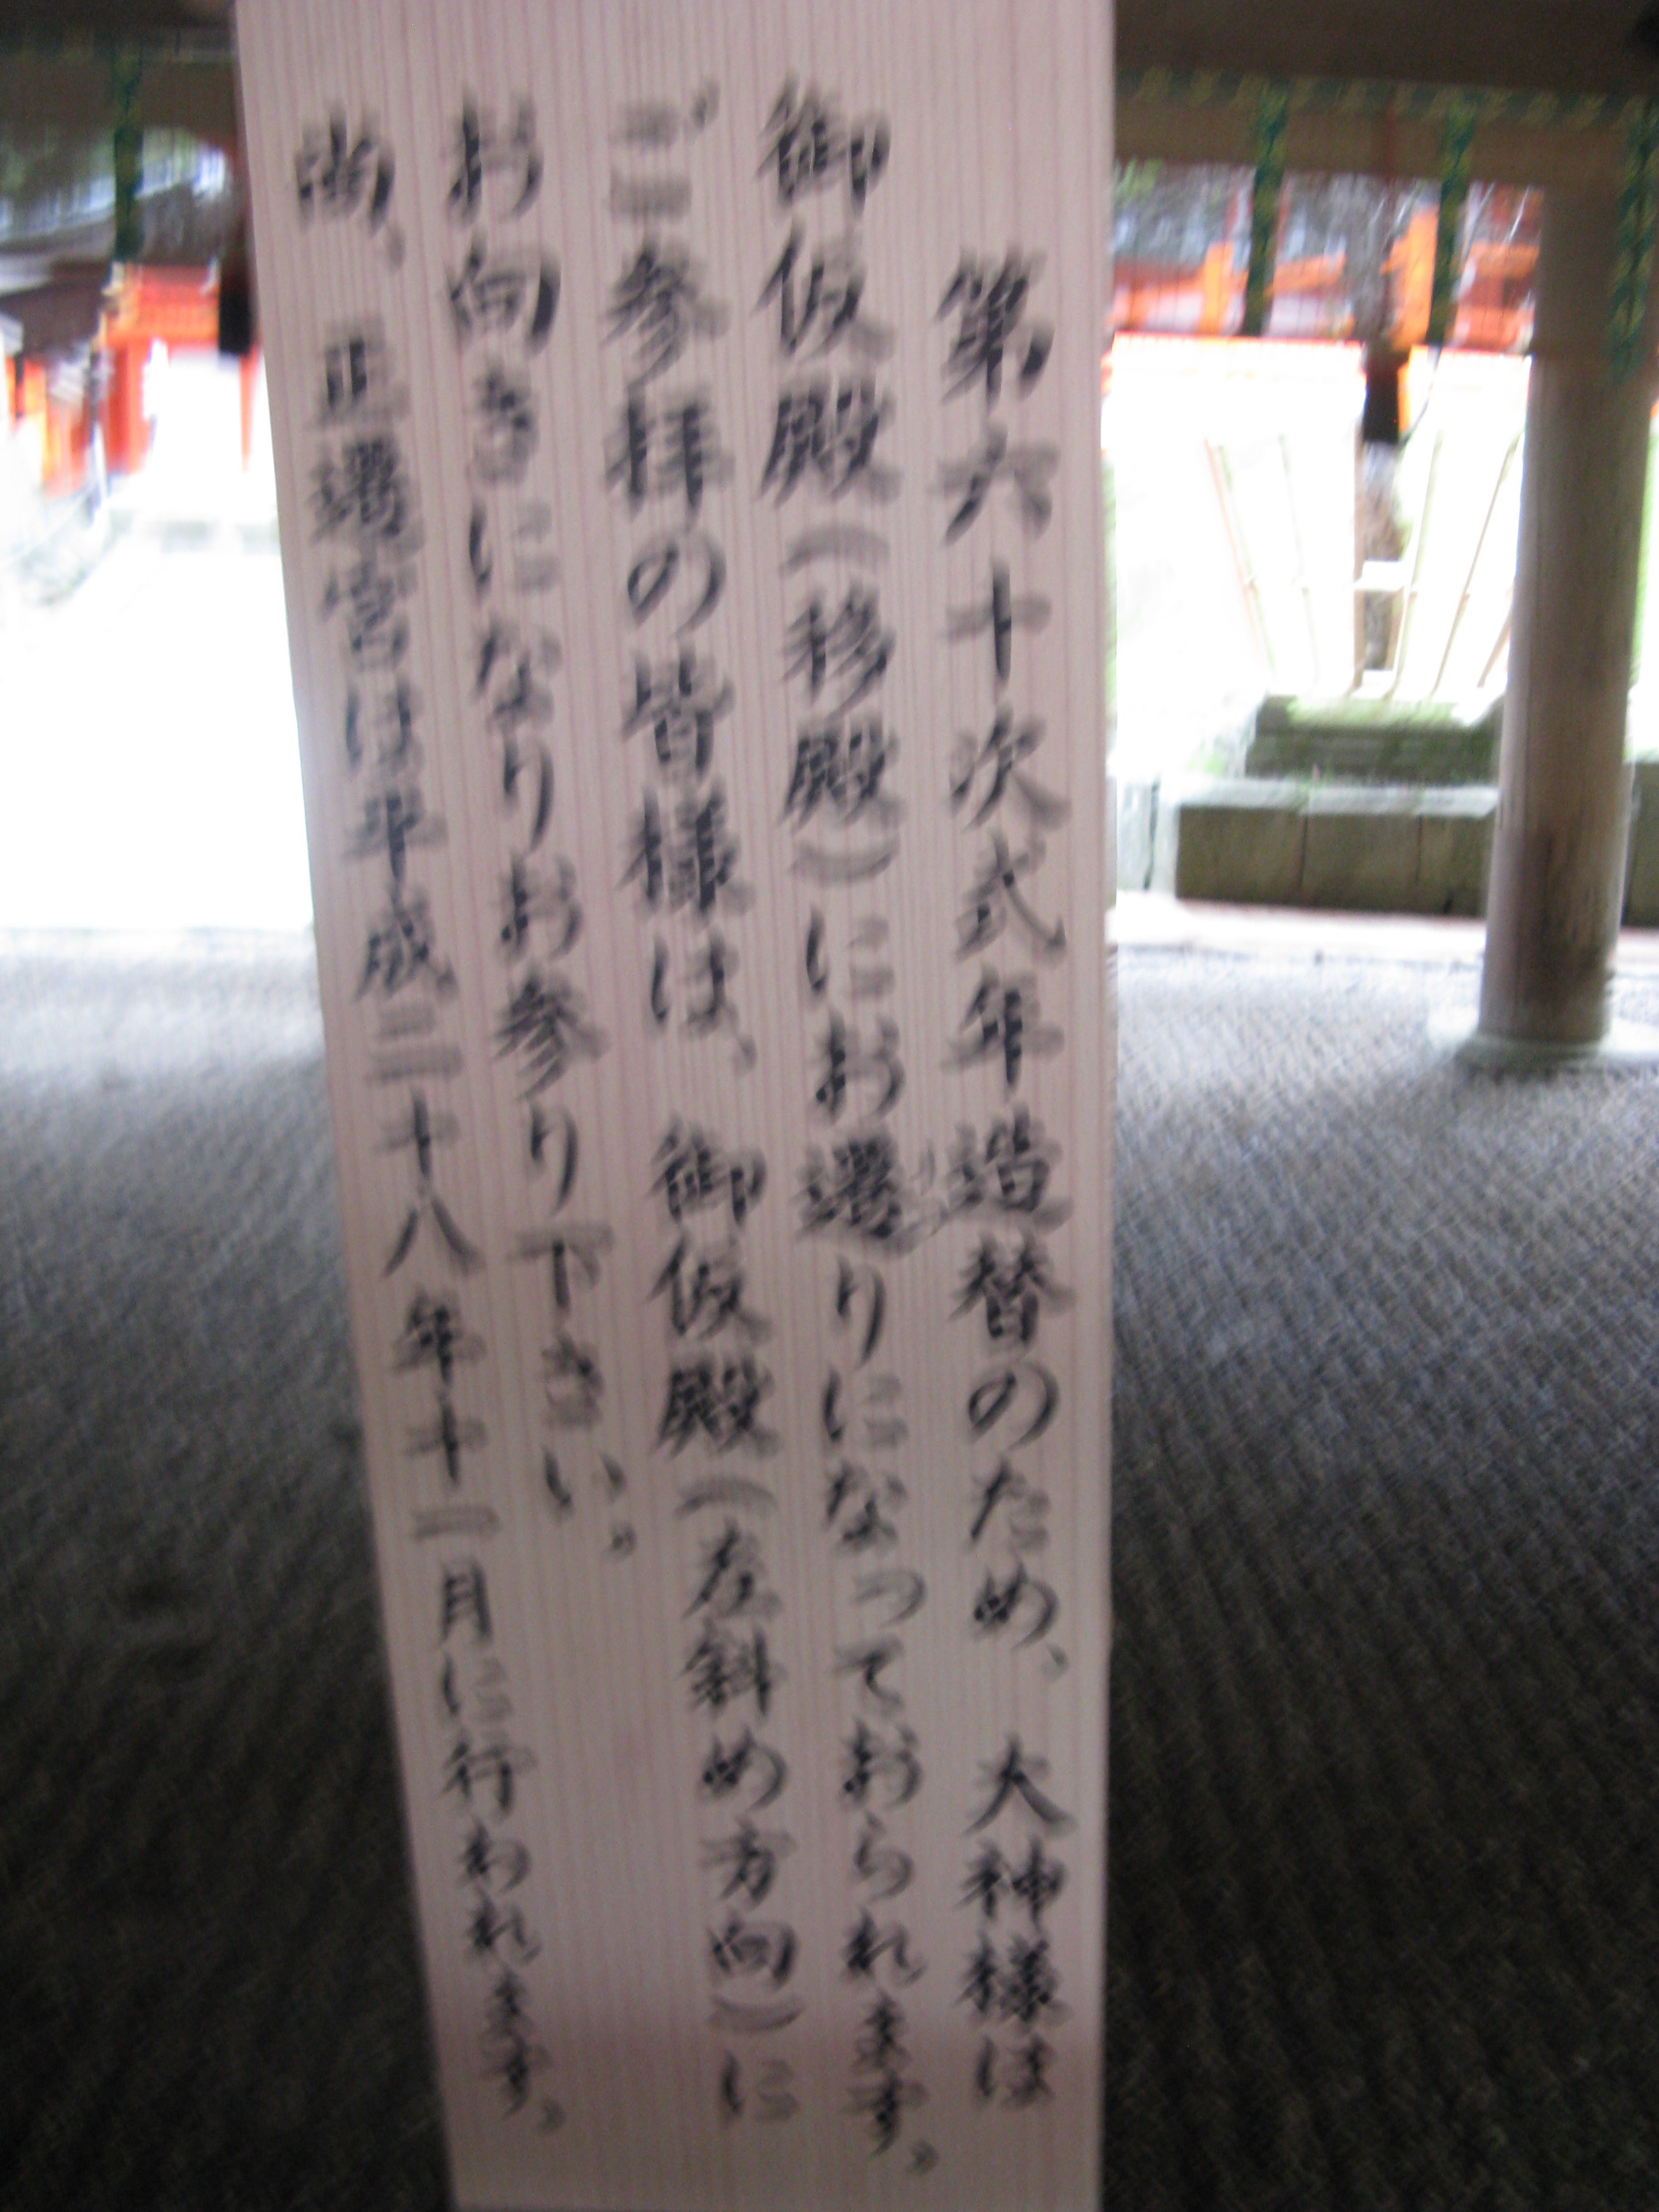 第六十次式年造替のため、大神様は
御仮殿（移殿）にお遷りになっておられます。
ご参拝の皆様は、御仮殿（左斜め方向）に
お向きになりお参り下さい。
尚、正遷宮は平成二十八年十一月に行われます。